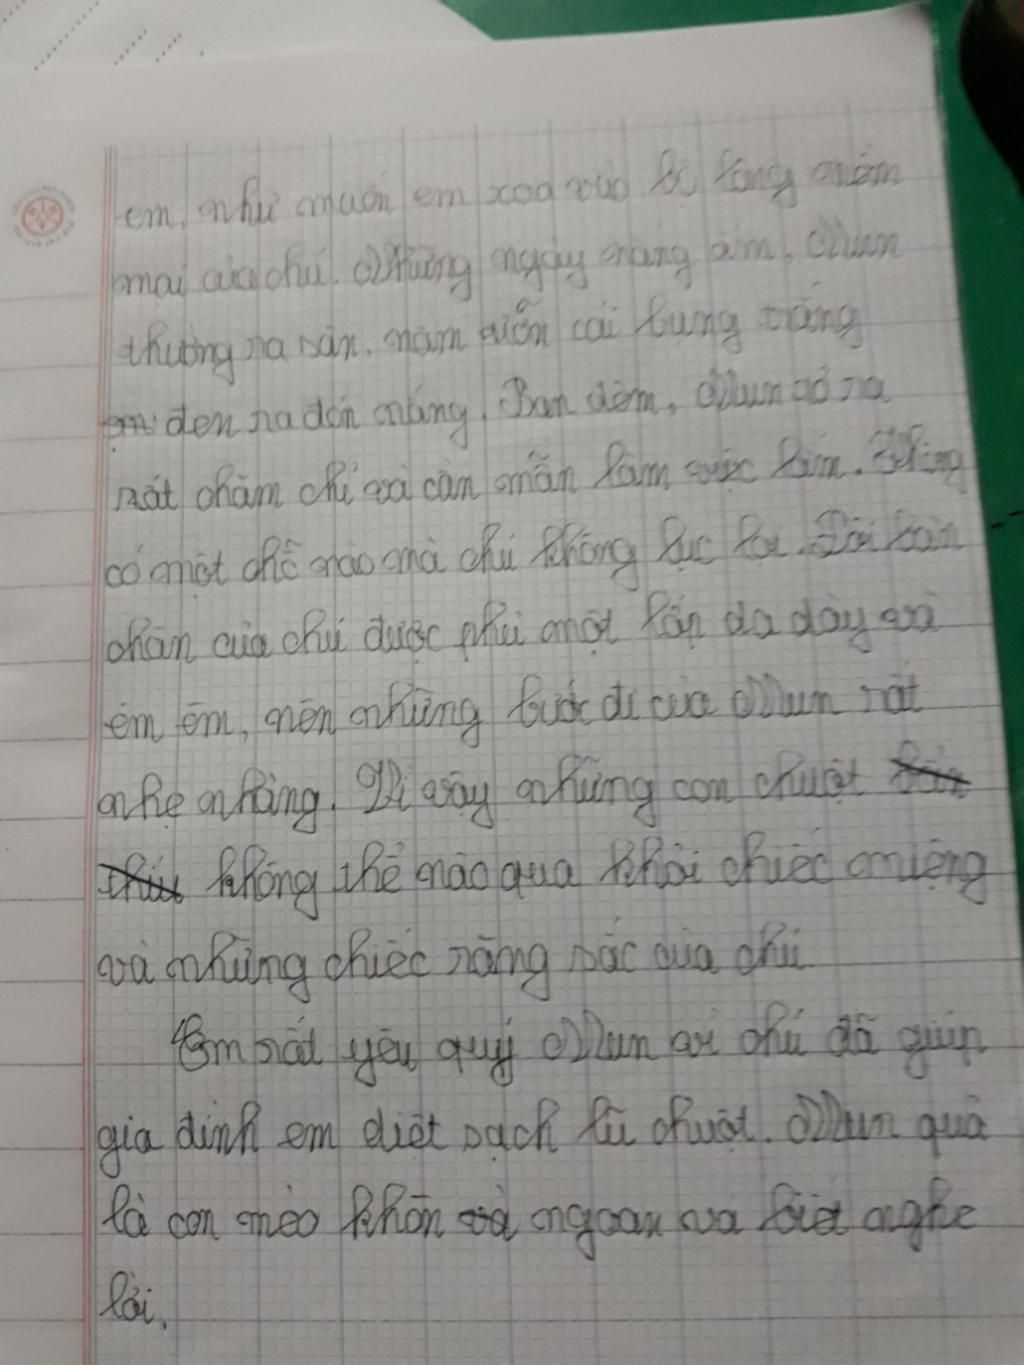 em, như muốn em xoa vào bộ lông mềm
mại của chú. Những ngày nắng ấm, Mun
thường ra sân, nằm ưỡn cái bụng trắng
đen ra đón nắng. Ban đêm, Mun tỏ ra
rất chăm chỉ và cần mẫn làm việc lắm. Không
có một chỗ nào mà chú không lục lọi. Đôi bàn
chân của chú được phủ một lớp da dày và
êm êm, nên những bước đi của Mun rất
nhẹ nhàng. Vì vậy những con chuột
không thể nào qua khỏi chiếc miệng
và những chiếc răng sắc của chú
Em rất yêu quý Mun vì chú đã giúp
gia đình em diệt sạch lũ chuột. Mun quả
là con mèo khôn ngoan và biết nghe
lời.